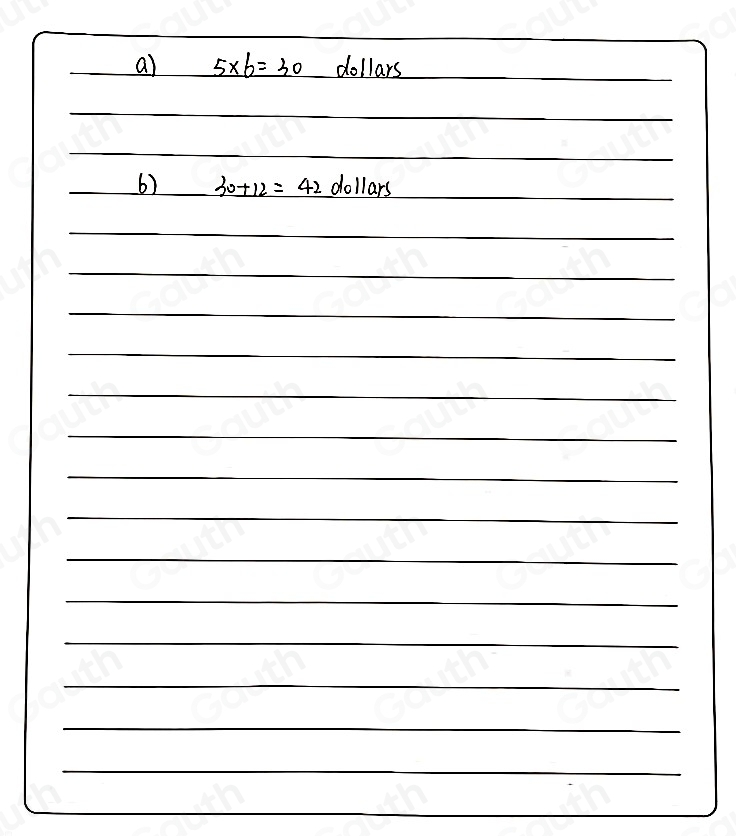 a) 5×6=30 dollars
b) 30+12= 42 dollars